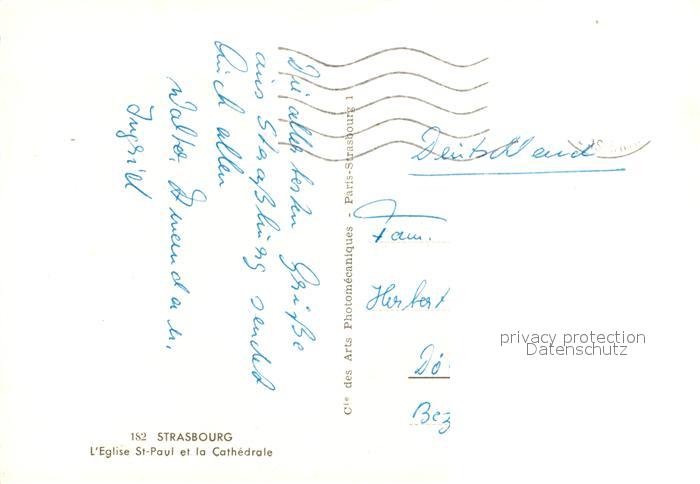 Die allerbesten Grüße
aus Straßburg sendet
Euch allen
Walter Amanda u.
Ingrid
Cie des Arts Photomécaniques - Paris-Strasbourg 1
Deutschland
Fam.
Herbert
Dö
Bez
privacy protection
Datenschutz
182 STRASBOURG
L'Eglise St-Paul et la Cathédrale